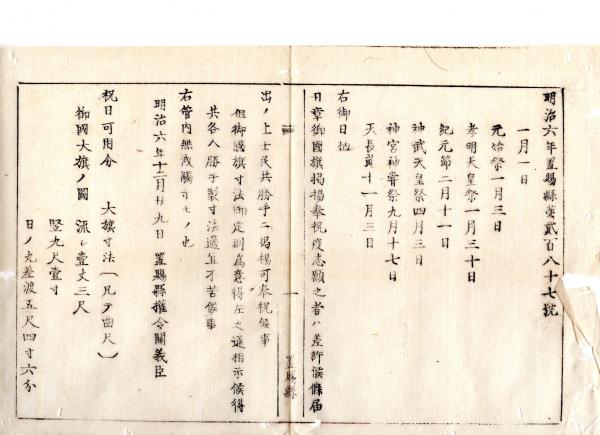 明治六年置賜縣第貳百八十七號
一月一日
元始祭一月三日
孝明天皇祭一月三十日
紀元節二月十一日
神武天皇祭四月三日
神宮神嘗祭九月十七日
天長節十一月三日
右御日柄
日章御國旗揭揚奉祝度志願之者ハ差許候條届
出ノ上士民共勝手ニ揭楊可奉祝候事
但御國旗寸法御定則爲意得左之通指示候得
共各人勝手製寸法適宜不苦候事
右管内無洩觸示モノ也
明治六年十二月廿九日 置賜縣權令關義臣
祝日可用分 大旗寸法(凡テ曲尺)
御國大旗ノ圖 流レ壹丈三尺
竪九尺壹寸
日ノ丸差渡五尺四寸六分
置賜縣